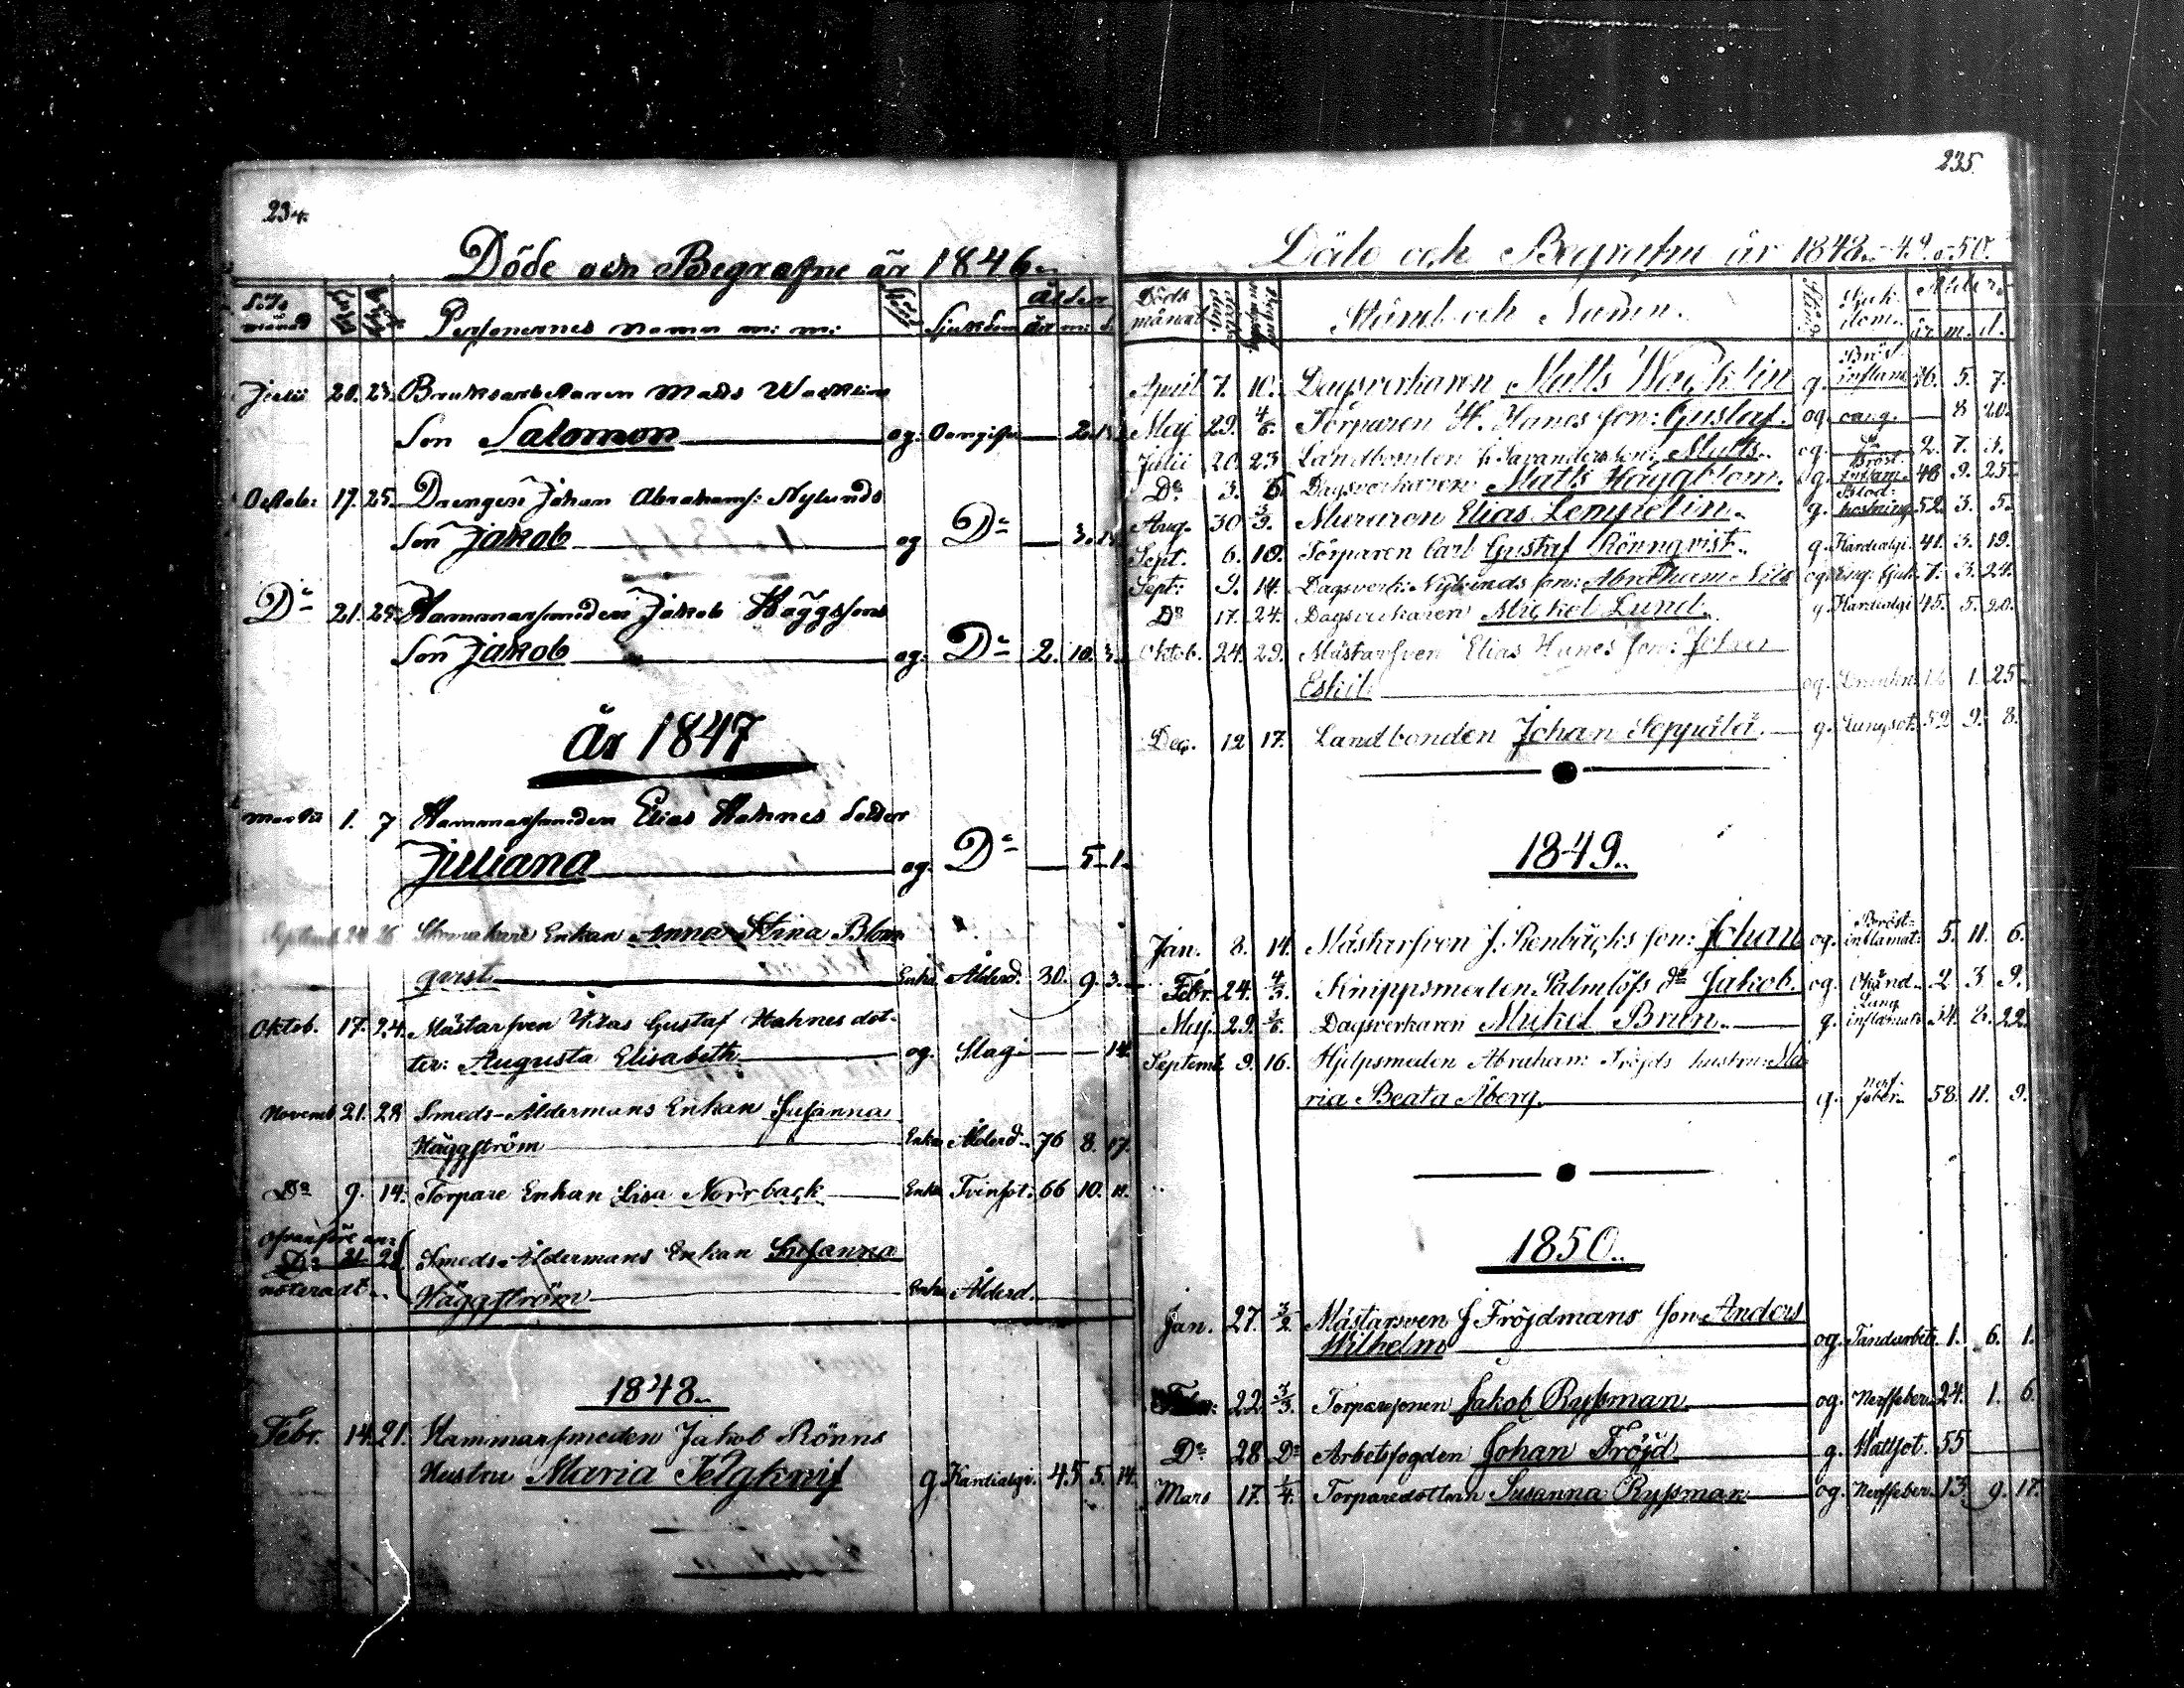 234.
Döde och Begrafne år 1846.
Döds månad Personernes namn m: m: Sjukdom ålder år m: d.
Julii 20. 23. Bruksarbetaren Matts Wacklin
Son Salomon og: Oangifv. — 2.
Octob: 17. 25. Drengen Johan Abrahams: Nylunds
Son Jakob og Do — 3.
Do 21. 25. Hammarsmeden Jakob Häggssons
Son Jakob og: Do 2. 10. 3.
År 1847
Martii 1. 7 Hammarsmeden Elias Hahnes dotter
Juliana og. Do — 5. 1.
Septemb 20 26 Skomakare Enkan Anna Stina Blom
qvist Enka Ålderd. 30. 9. 3.
Oktob. 17. 24. Mästarsven Klas Gustaf Hahnes dot-
ter: Augusta Elisabeth og. Slag — — 14.
Novemb 21. 28 Smeds-Åldermans Enkan Susanna
Häggström Enka Ålderd. 76 8. 17.
Do 9. 14. Torpare Enkan Lisa Norrback Enka Tvinsot. 66 10. 11.
Ofvanföre an-
Do 21 28 Smeds-Åldermans Enkan Susanna
noteradt.
Häggström Enka Ålderd.
1848.
Febr. 14. 21. Hammarsmeden Jakob Rönns
Hustru Maria Felgknif g Kardialgi. 45. 5. 14.
235.
Döde och Begrafne år 1848.-49.-50.
Döds månad Stånd och Namn. Sjukdom. Ålder år m. d.
April 7. 10. Dagsverkaren Matts Wacklin g. Bröst inflam 5. 7.
Maj 29. 4/6. Torparen H. Hanes son: Gustaf. og. oang. — 8 20.
Julii 20. 23 Landbonden Savanders son: Matts. og. Do 2. 7. 3.
Do 3. 6. Dagsverkaren Matts Häggblom. g. Bröst inflam. 48 9. 25.
Aug. 30 3/9. Muraren Elias Lempelin. g. Blod: hostning 52. 3. 5.
Sept. 6. 10. Torparen Carl Gustaf Rönnqvist. g. Kardialgi. 41. 3. 19.
Sept: 9. 14. Dagsverk: Nylunds son: Abraham Nils og Eng: sjuk. 7. 3. 24.
Do 17. 24. Dagsverkaren Mickel Lund. g. Kardialgi 45. 5. 20.
Oktob. 24. 29. Mästarsven Elias Hanes son: Johan
Eskil. og. 1. 25.
Dec. 12 17. Landbonden Johan Seppälä. g. Lungsot. 52 9. 8.
1849.
Jan. 8. 14. Mästarsven J. Renbäcks son: Johan og. Bröst: inflamat: 5. 11. 6.
Febr. 24. 4/3. Knippsmeden Palmlöfs do Jakob. og. Okänd. 2 3. 9.
Maj. 29. 3/6. Dagsverkaren Mickel Brun. g. Lung inflamat: 34. 8. 22.
Septemb. 9. 16. Hjelpsmeden Abraham: Fröjds hustru: Ma
ria Beata Åberg. g. Nerf: feber. 58. 11. 9.
1850.
Jan. 27. 3/2. Mästarsven J Fröjdmans son Anders
Wilhelm og. Tandarbet. 1. 6. 1.
Febr: 22. 3/3. Torparesonen Jakob Ryssman og. Nerffeber. 24. 1. 6.
Do 28 Do Arbetsfogden Johan Fröjd g. Hallsot. 55
Mars 17. 1/4. Torparedottern Susanna Ryssman og. Nerffeber. 13. 9. 17.